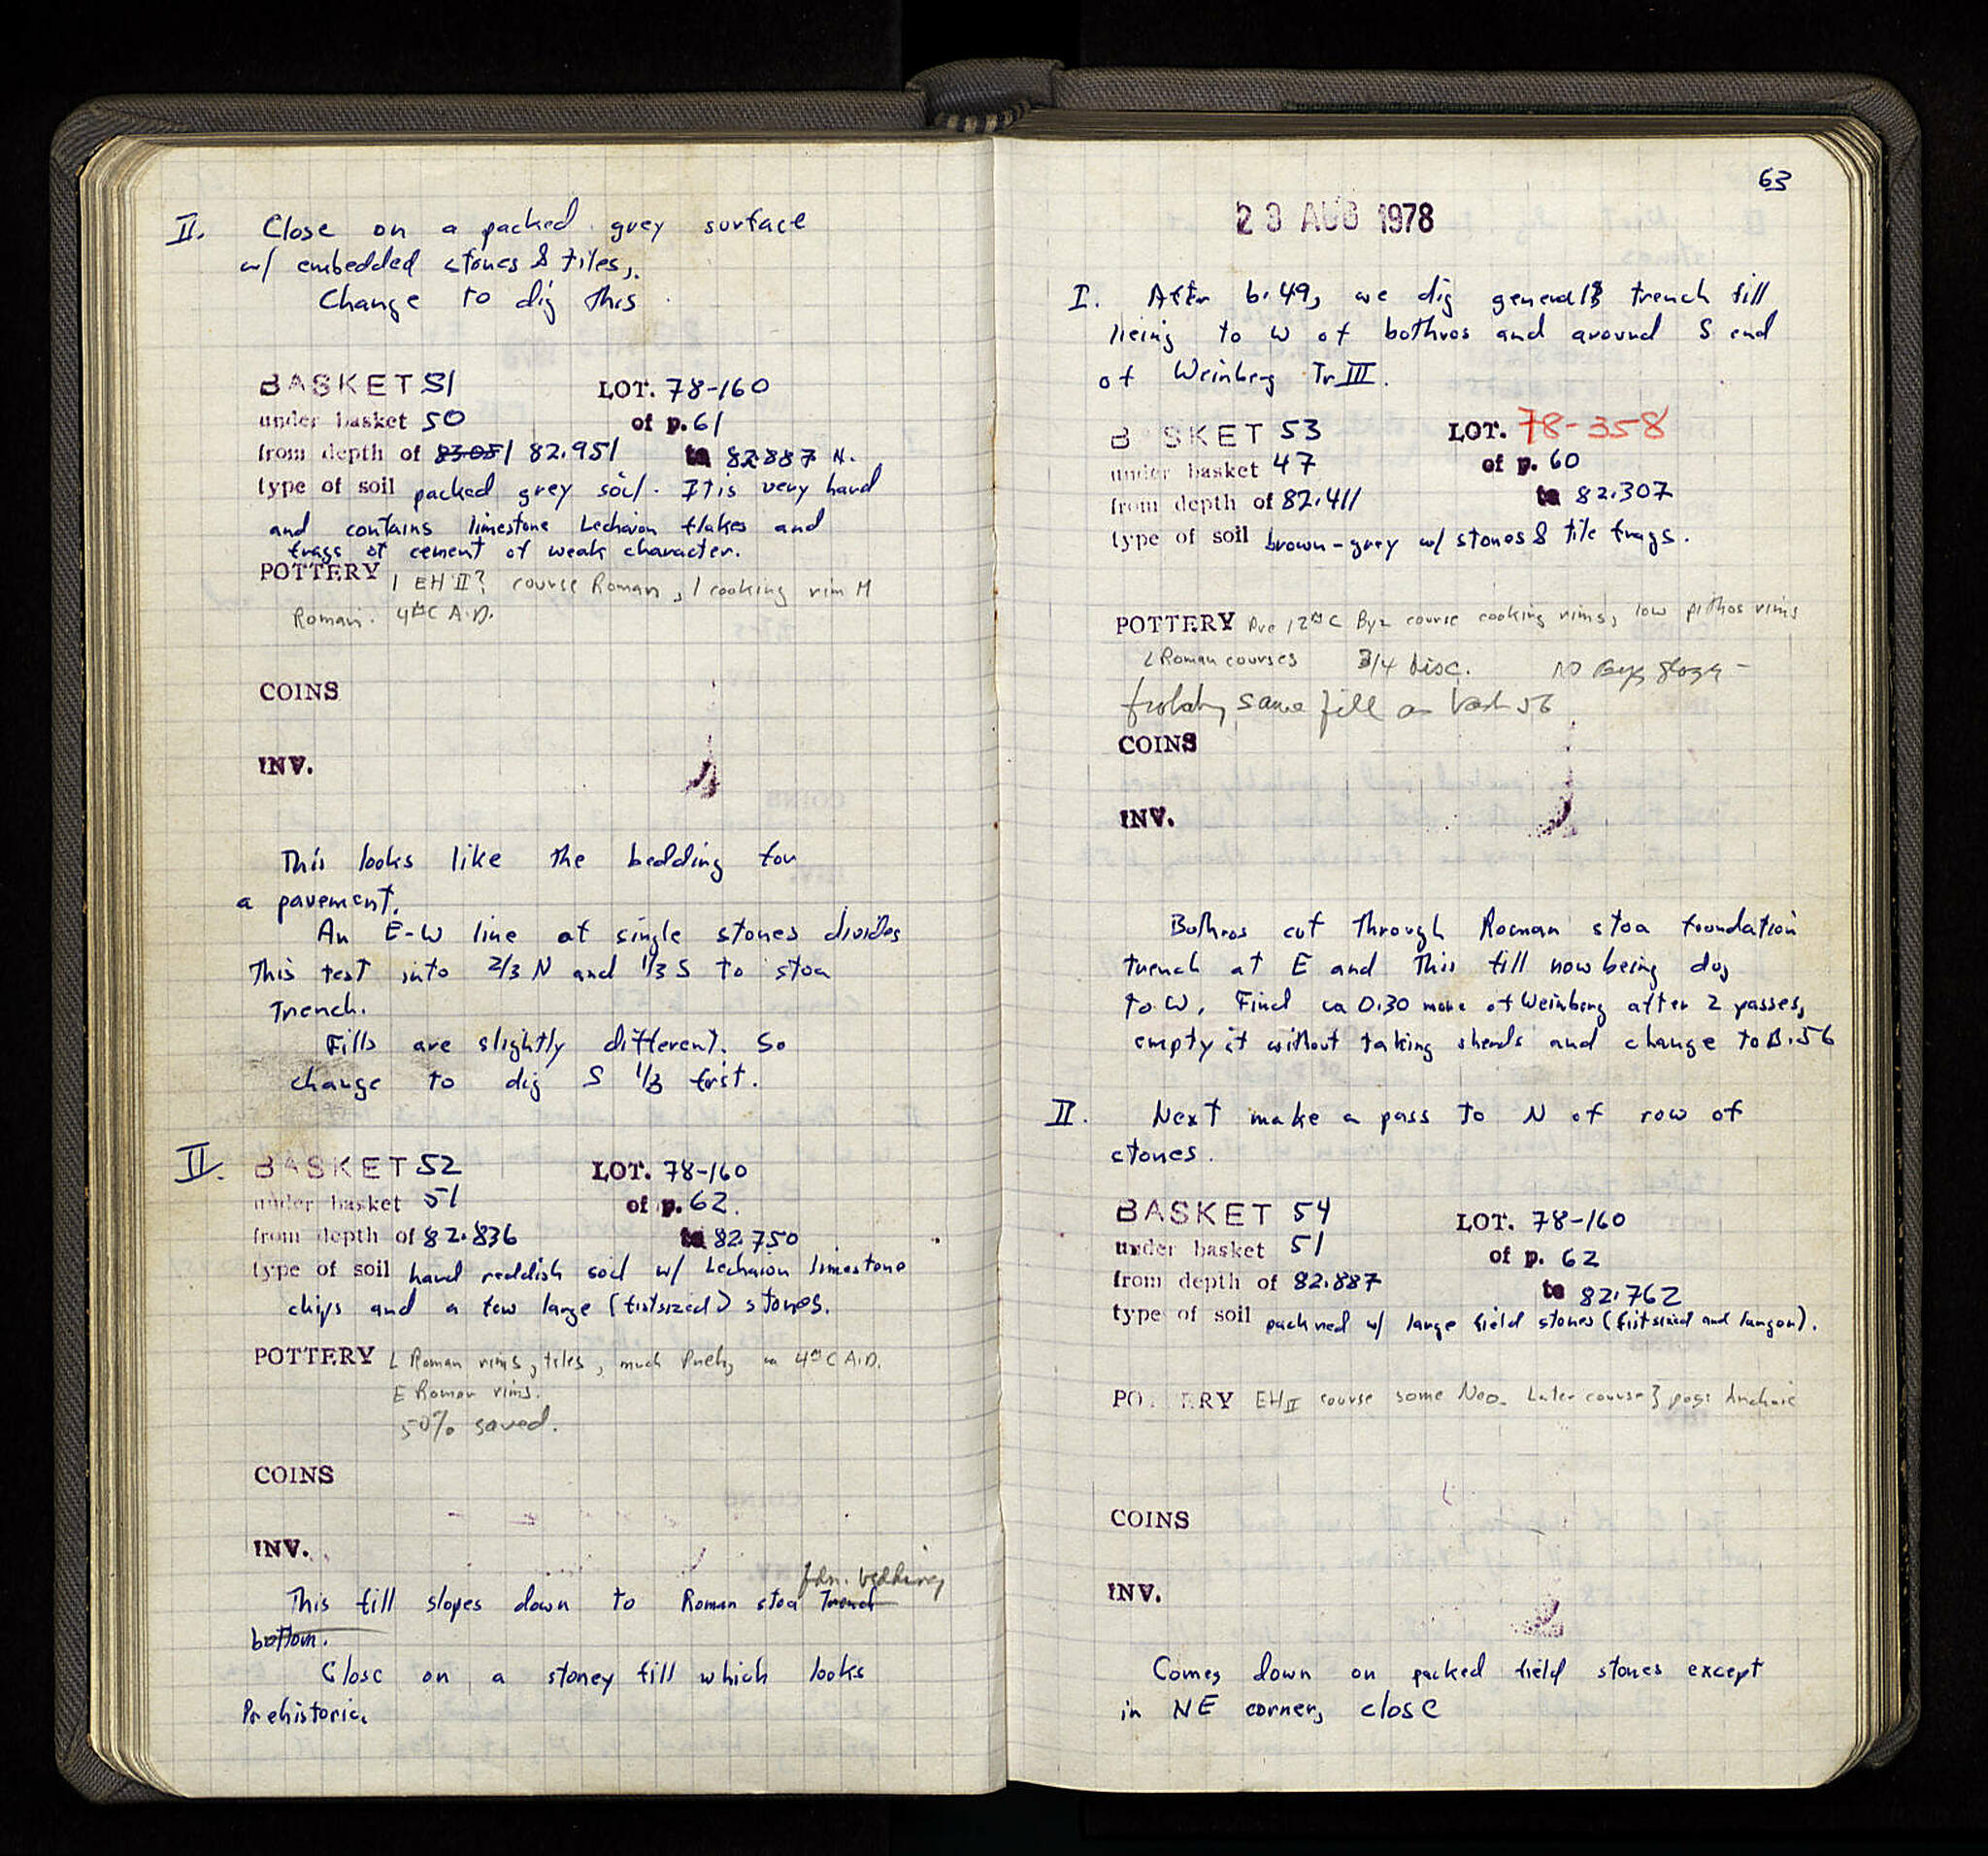 II. Close on a packed grey surface
w/ embedded stones & tiles,.
Change to dig this.
BASKET 51 LOT. 78-160
under basket 50 of p. 61
from depth of 83.051 82.951 to 82.887 N.
type of soil packed grey soil. It is very hard
and contains limestone Lechaion flakes and
frags of cement of weak character.
POTTERY 1 EH II? course Roman, 1 cooking rim M
Roman. 4th C A.D.
COINS
INV.
This looks like the bedding for
a pavement.
An E-W line of single stones divides
this test into 2/3 N and 1/3 S to stoa
Trench.
Fills are slightly different. So
change to dig S 1/3 first.
II. BASKET 52 LOT. 78-160
under basket 51 of p. 62.
from depth of 82.836 to 82.750
type of soil hard reddish soil w/ Lechaion limestone
chips and a few large (fistsized) stones.
POTTERY L Roman rims, tiles, much Preh, ca 4th C A.D.
E Roman rims.
50% saved.
COINS
INV.
fdn. bedding
This fill slopes down to Roman stoa Trench
bottom.
Close on a stoney fill which looks
Prehistoric.
63
23 AUG 1978
I. After b. 49, we dig general trench fill
lieing to W of bothros and around S end
of Weinberg Tr III.
B SKET 53 LOT. 78-358
under basket 47 of p. 60
from depth of 82.411 to 82.307
type of soil brown-grey w/ stones & tile frags.
POTTERY Pre 12th C Byz course cooking rims, low pithos rims
L Roman courses 3/4 Disc. No Byz glaze -
probably same fill as bask 56
COINS
INV.
Bothros cut through Roman stoa foundation
trench at E and this fill now being dug
to W. Find ca 0.30 more of Weinberg after 2 passes,
empty it without taking sherds and change to B. 56
II. Next make a pass to N of row of
stones.
BASKET 54 LOT. 78-160
under basket 51 of p. 62
from depth of 82.887 to 82.762
type of soil pack red w/ large field stones (fistsized and larger).
POTTERY EH II course some Neo. Later course} poss Archaic
COINS
INV.
Comes down on packed field stones except
in NE corner, close